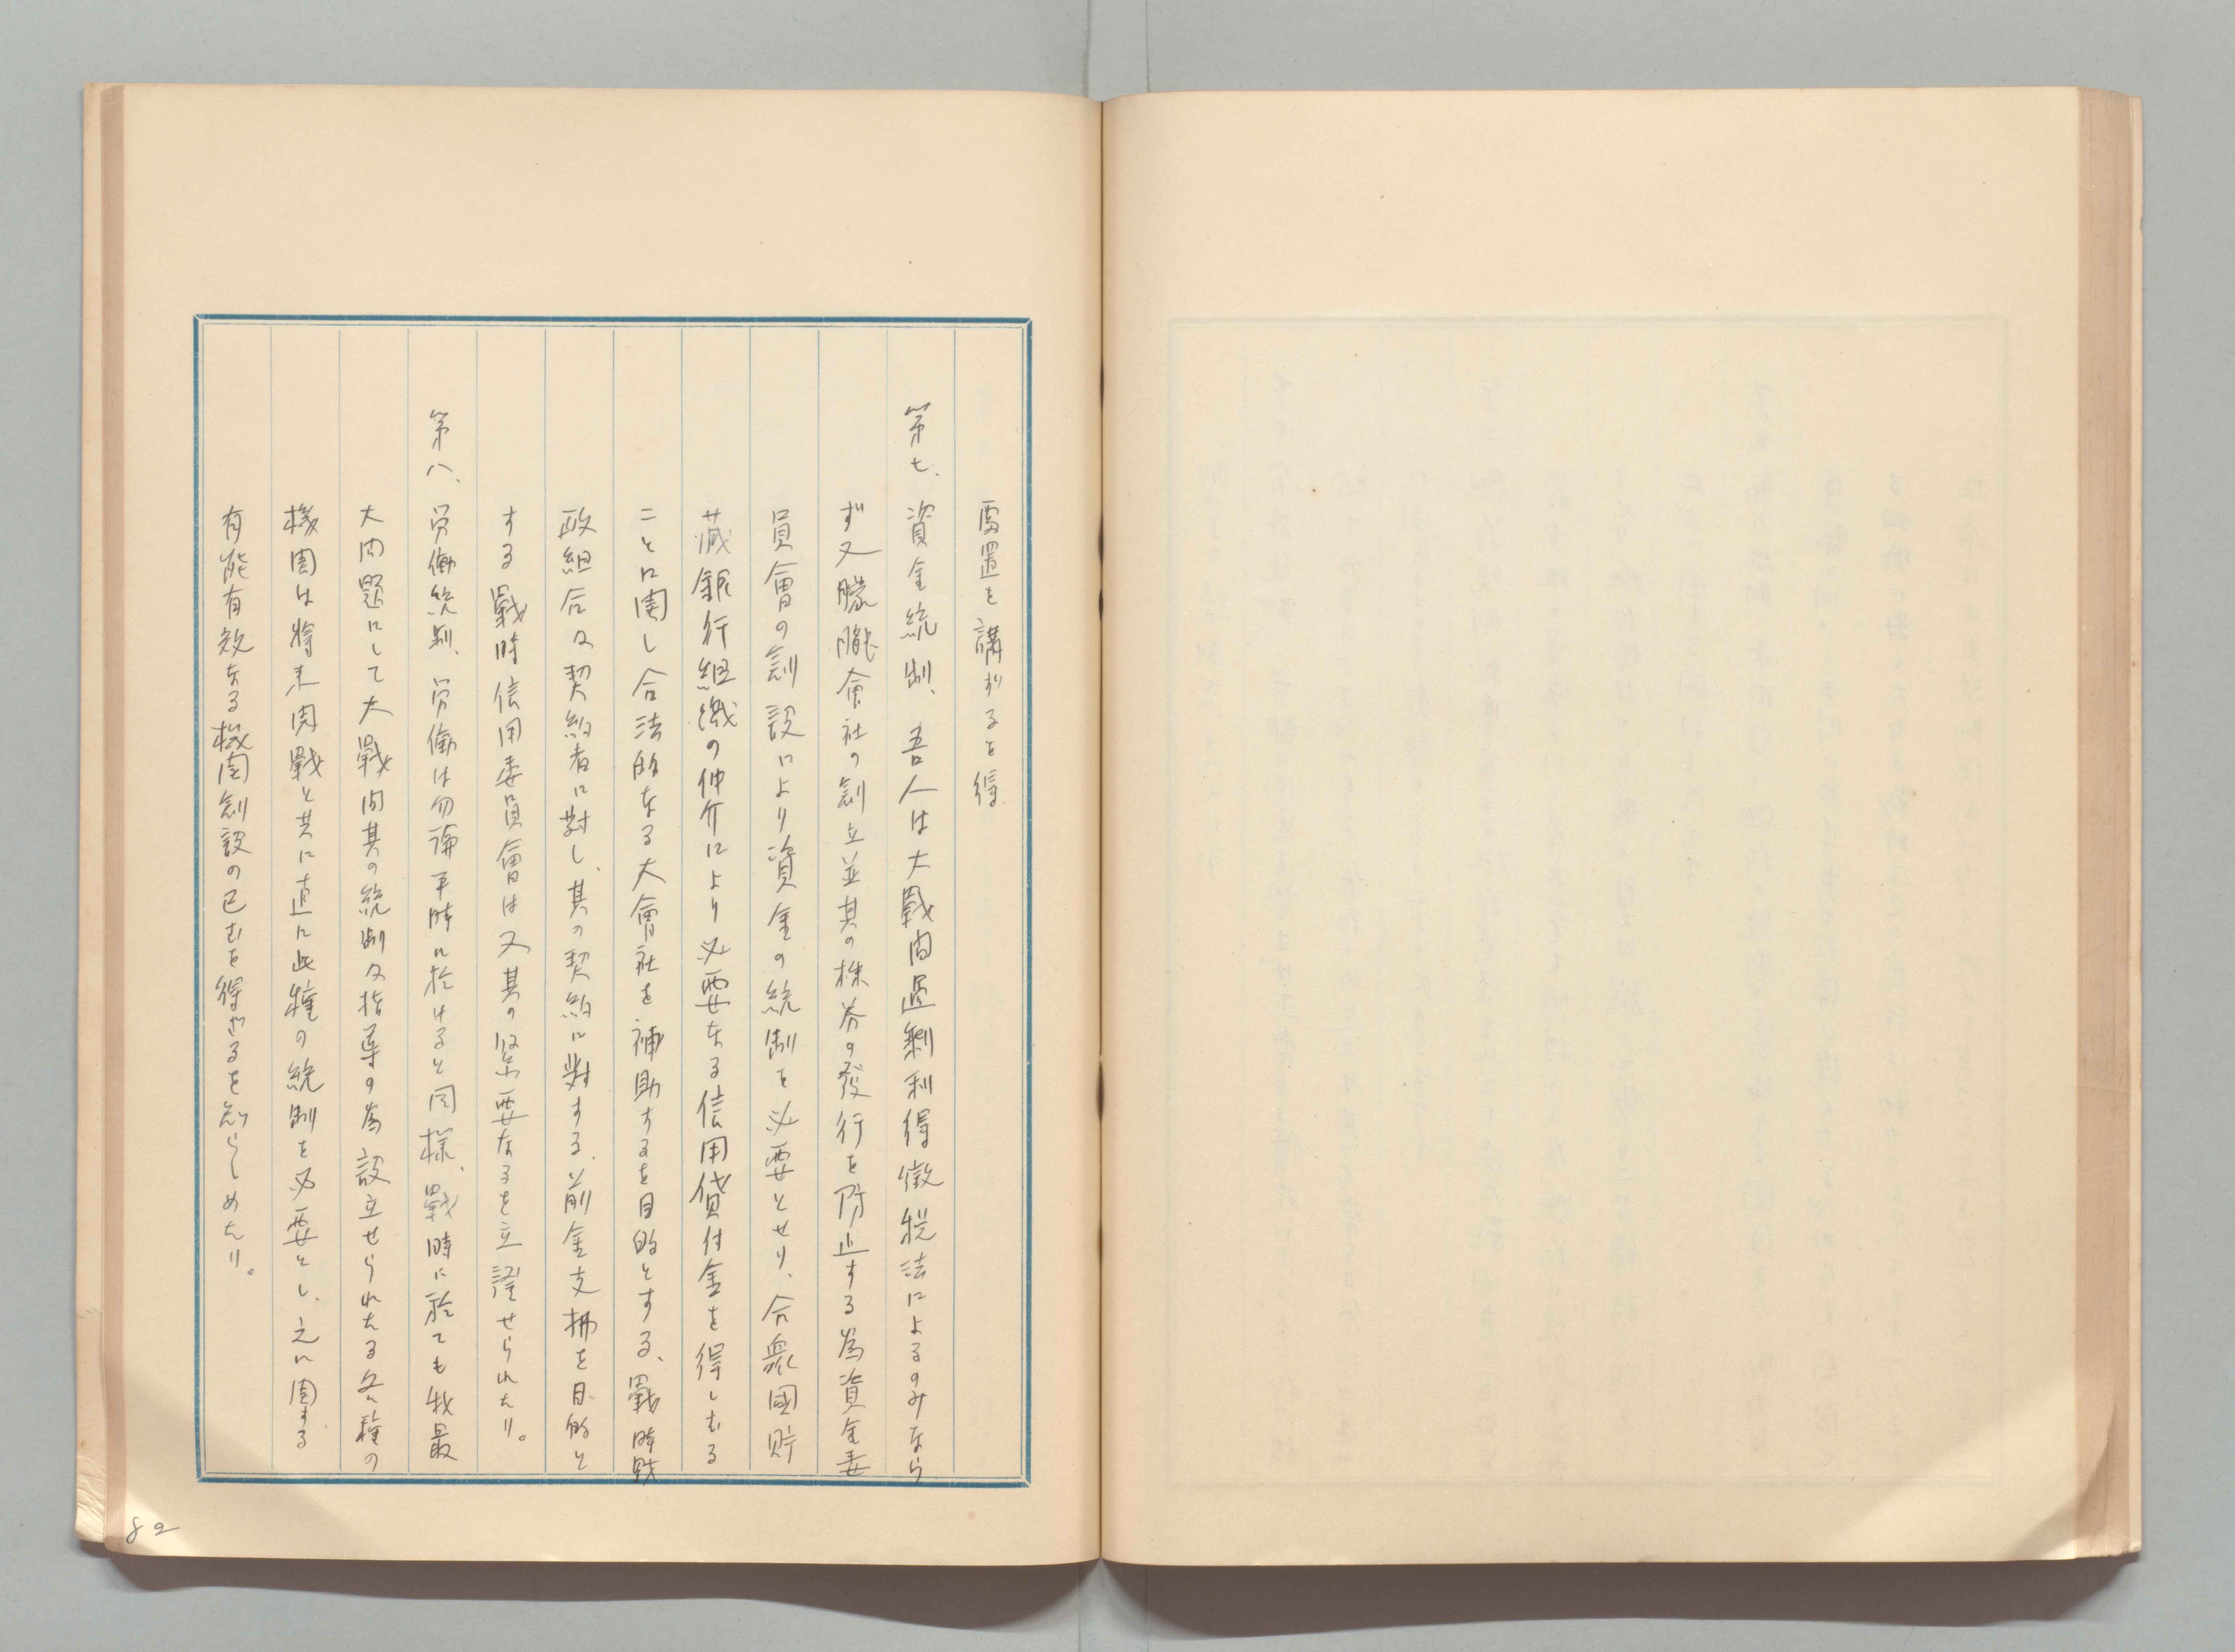 處置を講ずるを得
第七、資金統制、吾人は大戰間過剩利得徴税法によるのみなら
ず又朦朧會社の創立並其の株券の發行を防止する為資金委
員會の創設により資金の統制を必要とせり、合衆國貯
蔵銀行組織の仲介により必要なる信用貸付金を得しむる
ことに関し合法的なる大會社を補助するを目的とする、戰時財
政組合及契約者に對し、其の契約に對する、前金支拂を目的と
する戰時信用委員會は又其の緊要なるを立證せられたり。
第八、労働統制、労働は勿論平時に於けると同様、戰時に於ても我最
大問題にして大戰間其の統制及指導の為設立せられたる各種の
機関は将来開戰と共に直に此種の統制を必要とし、之に関する
有能有效なる機関創設の已むを得ざるを知らしめたり。
82